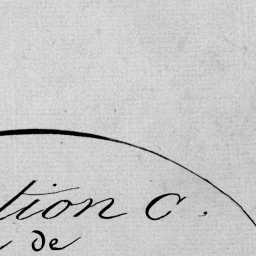 tion C.
de